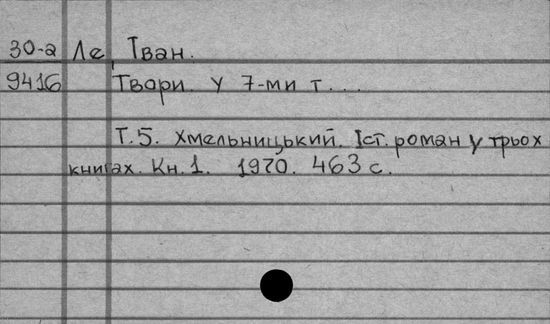 30-а Ле, Іван.
9416 Твори. У 7-ми т...
Т.5. Хмельницький. Іст. роман у трьох
книгах. Кн.1. 1970. 463 с.